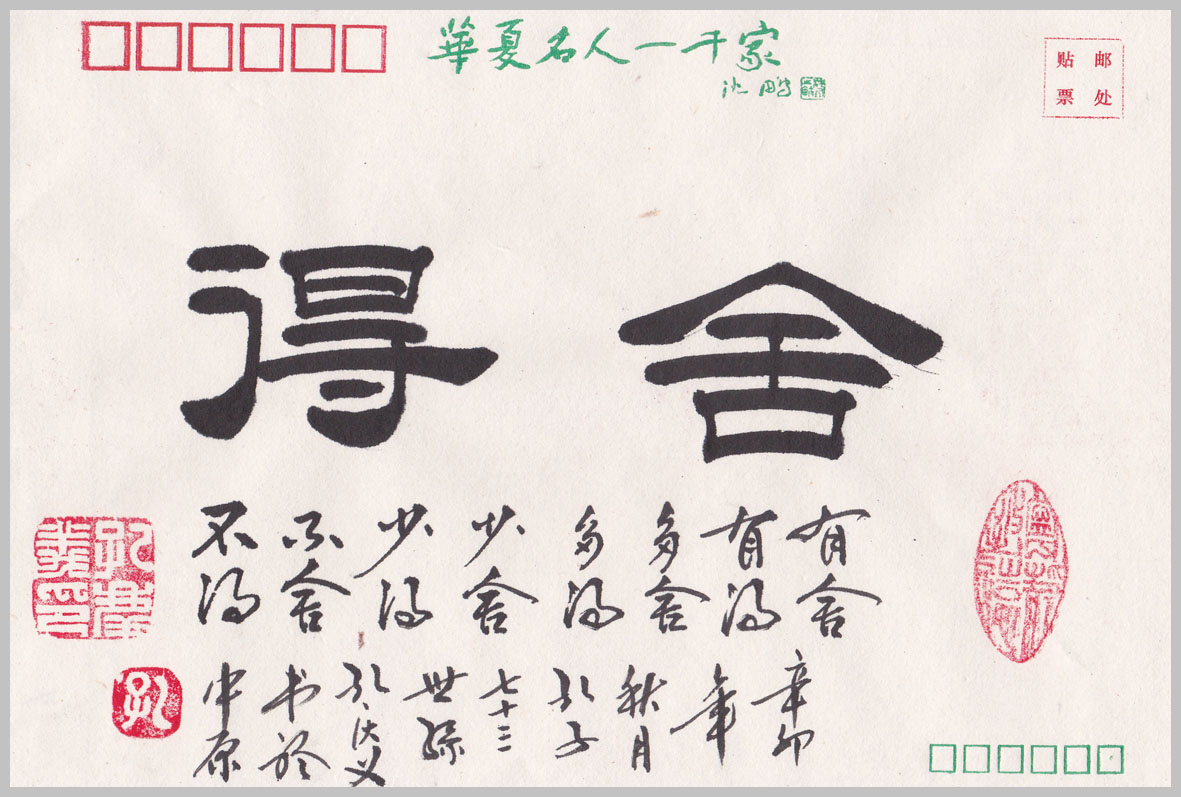 華夏名人一千家
沈鹏
贴邮
票处
舍得
有舍有得多舍多得少舍少得不舍不得
辛卯年秋月孔子七十三世孙孔庆义书於中原
孔慶義印
孔